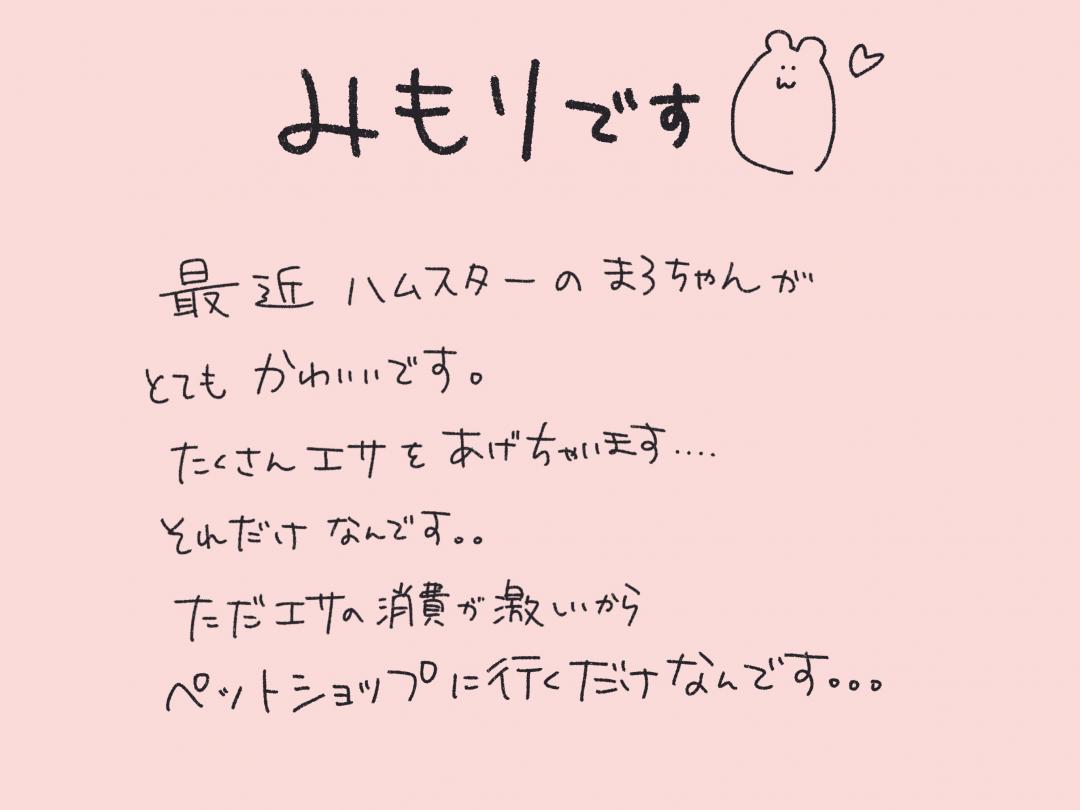 みもりです
最近 ハムスターの まろちゃんが
とても かわいいです。
たくさん エサを あげちゃいます....
それだけ なんです。。
ただエサの消費が激しいから
ペットショップに行くだけなんです。。。